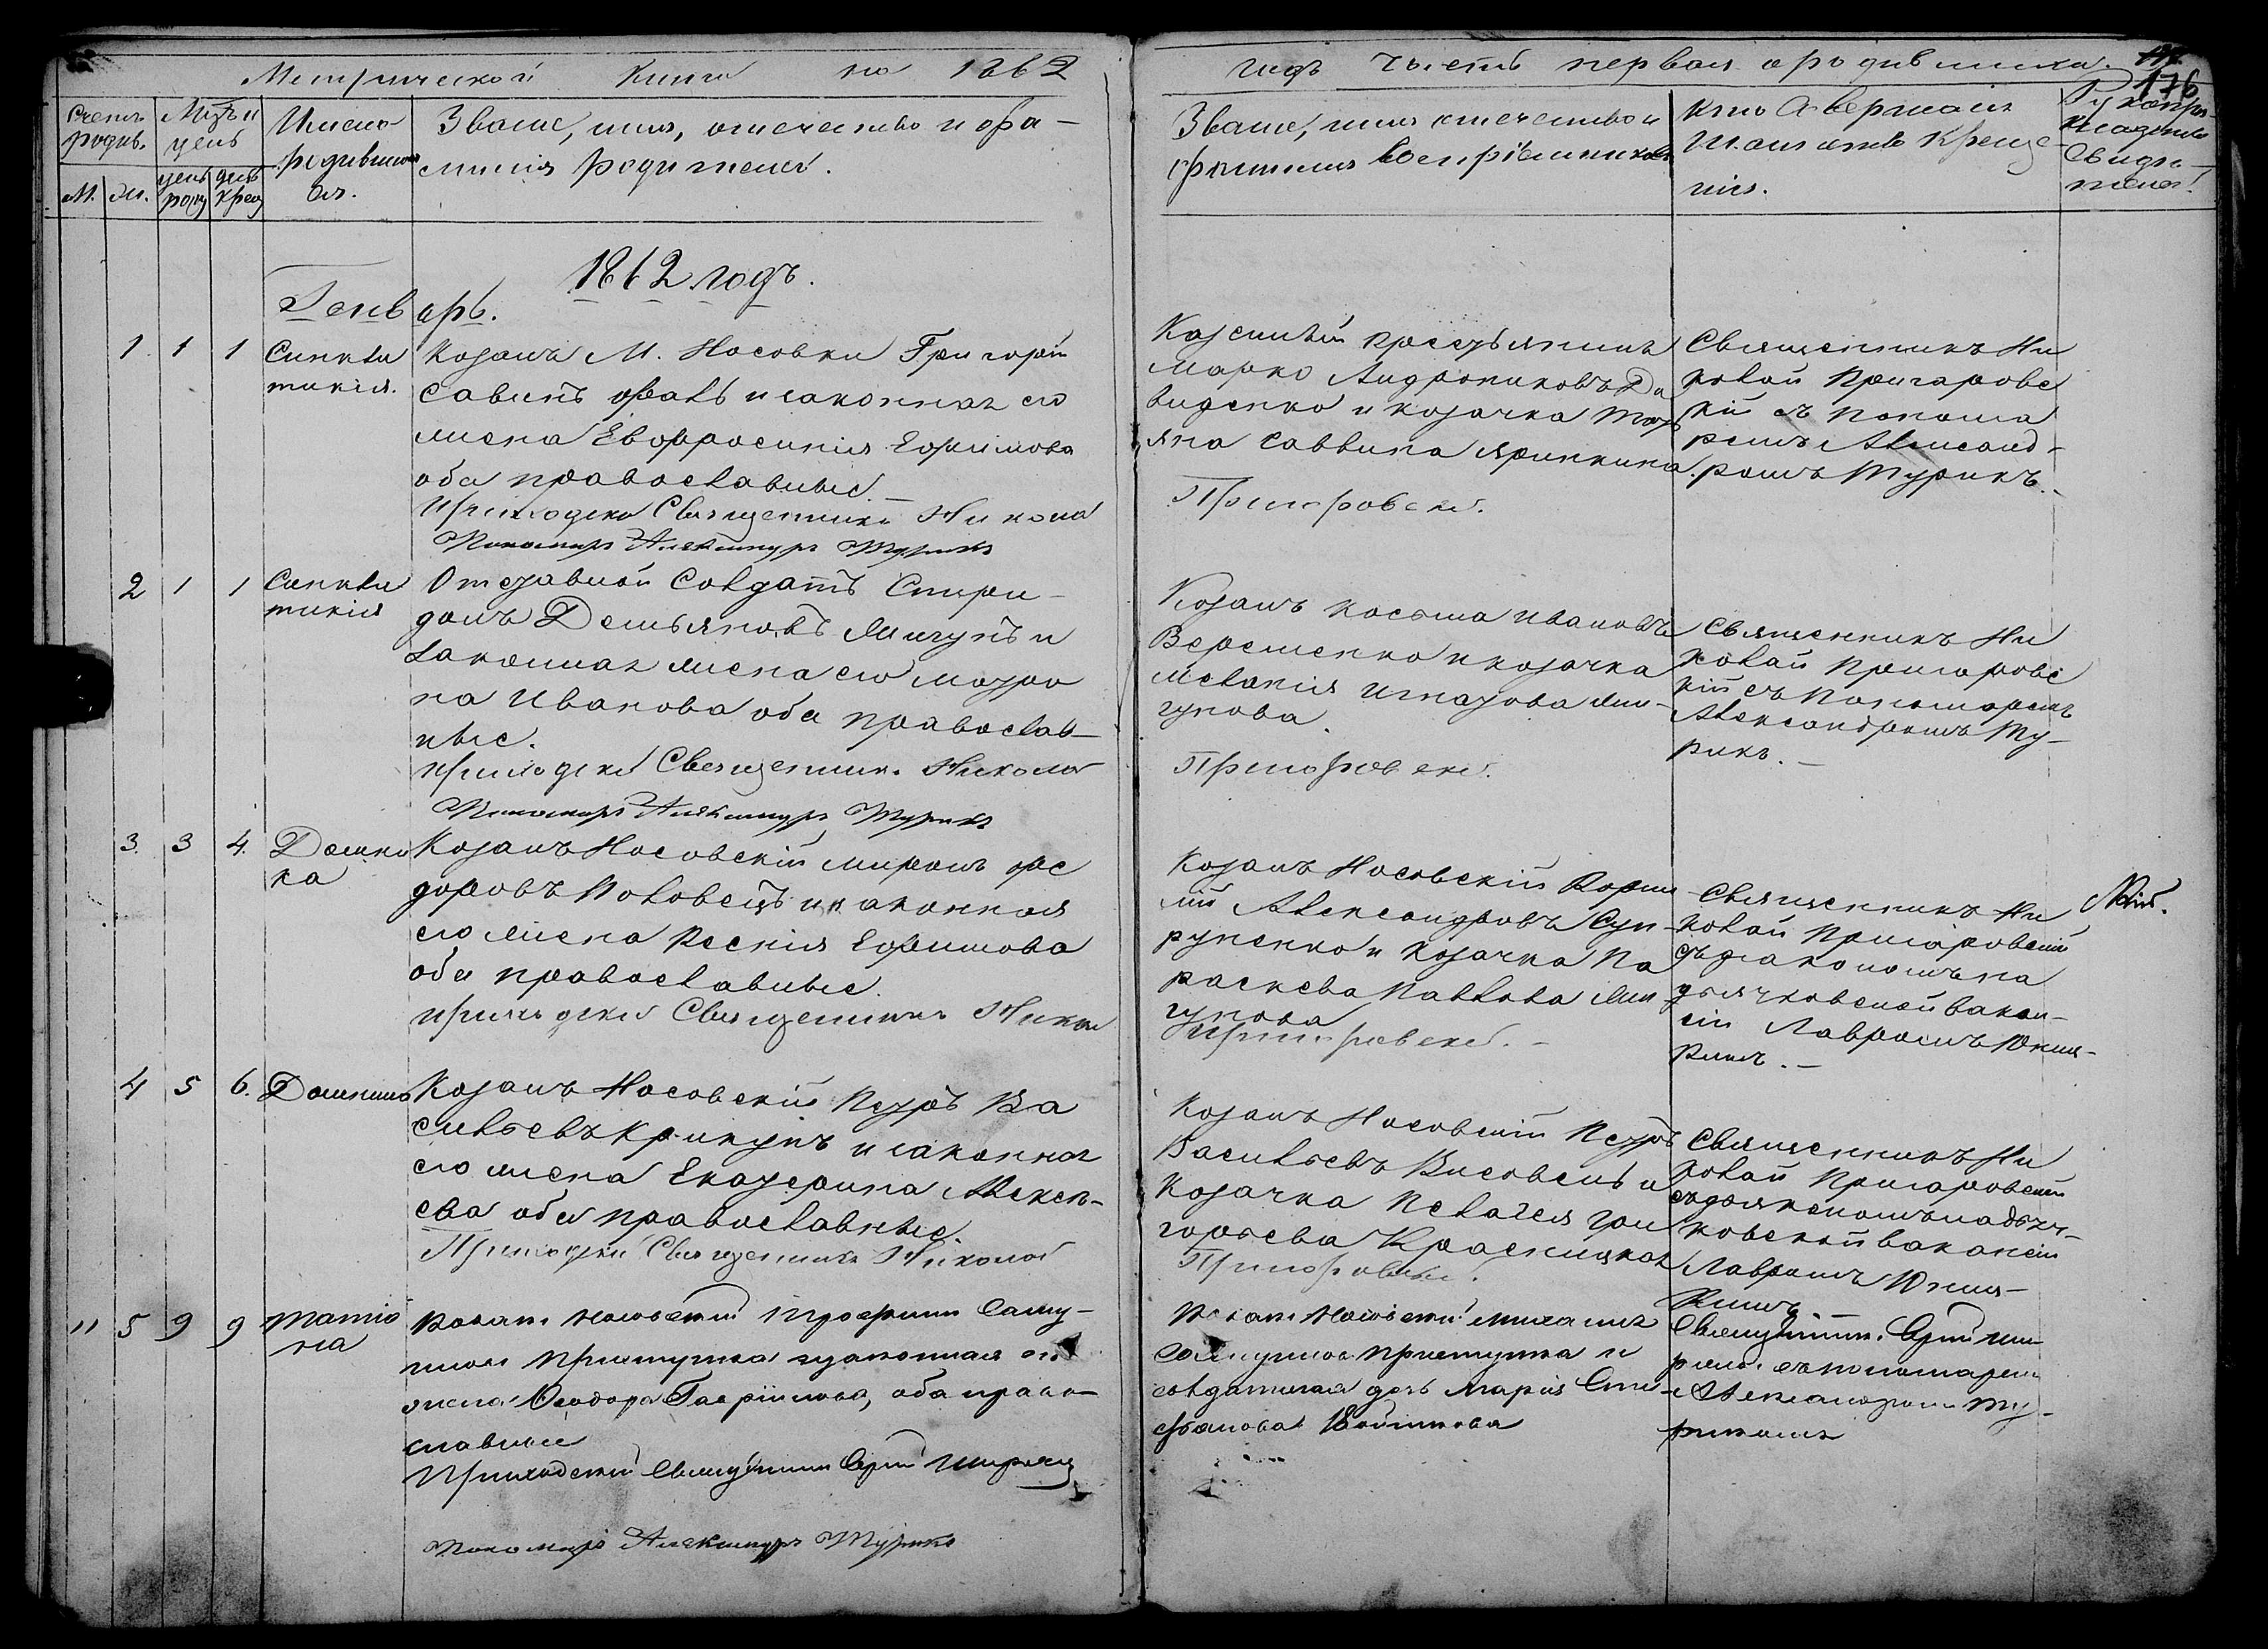 Метрической Книги на 1862
годъ часть первая о родившихся.
176
Счетъ родив.
М. Ж.
Мѣцъ и день
день рожд
день крещ
Имена родившихся.
Званіе, имя, отечество и фа-
милія родителей.
Званіе, имя отечество и
фамилия воспріемниковъ
Кто совершалъ
таинство Креще-
нія.
Рукопри-
кладство
свидѣ-
телей.
1862 годъ.
Генварь.
1. 1 1
Синкли
тикія.
Козакъ М. Носовки Григорій
Савинъ
и законная его
жена Евфросинія Ефимова
оба православные.
Приходскій Священникъ Николай
Пономарь Александръ Турикъ
Казенный крестьянинъ
Марко Андрониковъ Да
виденко и козачка Тать
яна Саввина Яринкина.
Пригаровскій.
Священникъ Ни
колай Пригаровс
кій съ понома
ремъ Александ-
ромъ Турикъ.
2 1 1
Синкли
тикія
Отставной Солдатъ Спири-
донъ Демьяновъ Мигунъ и
законная жена его Матро
на Иванова оба православ-
ные.
Приходскій Священникъ Николай
Пономарь Александръ Турикъ
Козакъ Косьма Ивановъ
Веременко и козачка
Меланія Игнатова Ми-
гунова.
Пригаровскій.
Священникъ Ни
колай Пригаровс
кій съ Пономаремъ
Александромъ Ту-
рикъ.
3. 3 4.
Домни
ка
Козакъ Носовскій Миронъ Фе
доровъ Половецъ и законная
его жена Ксенія Ефимова
оба православные.
Приходскій Священникъ Никол
Козакъ Носовскій Корни
лій Александровъ Суп-
руненко и Козачка Па
раскева Павлова Ми
гунова
Пригаровскій.
Священникъ Ни
колай Пригаровскій
съ діакономъ на
дьячковской вакан-
сіи Лавромъ Юшке-
вичъ.
4 5 6.
Домника
Козакъ Носовскій Петръ Ва
сильевъ Крикунъ и законная
его жена Екатерина Алексѣ-
ева оба православные.
Приходскій Священникъ Николай
Козакъ Носовскій Петръ
Васильевъ Висовень и
Козачка Пелагея Гри
горьева Красницкая
Пригаровскій.
Священникъ Ни
колай Пригаровскій
съ дьякономъ на дьяч-
ковской вакансіи
Лавромъ
" 5 9 9
Татіа
на
Козакъ Носовскій Трофимъ Саму-
иловъ Приступка и законная его
жена Ѳеодора Гавріилова, оба право-
славные
Приходскій Священникъ
Пономарь Александръ Турикъ
Козакъ Носовскій Михаилъ
Самуиловъ Приступка и
солдатская дочь Марія Сте-
фанова Войткова
Священникъ
съ пономаремъ
Александромъ Ту-
рикомъ